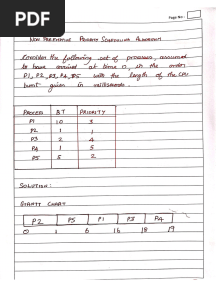 PDF
Page No:
NON PREEMTIVE PRIORITY SCHEDULING ALGORITHM
Consider the following set of processes, assumed
to have arrived at time 0, in the order
P1, P2, P3, P4, P5 with the length of the CPU
burst given in milliseconds.
PROCESS BT PRIORITY
P1 10 3
P2 1 1
P3 2 4
P4 1 5
P5 5 2
SOLUTION:
GHATT CHART
P2 P5 P1 P3 P4
0 1 6 16 18 19